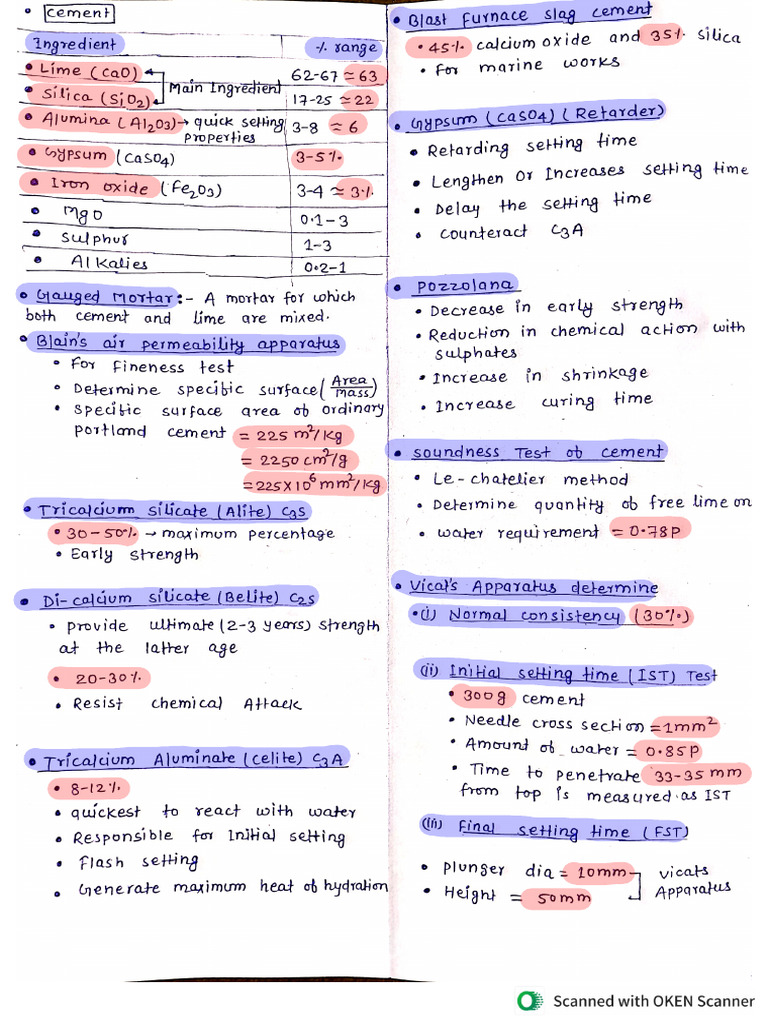 • Cement
Ingredient % range
• Lime (CaO) 62-67 ≈ 63
Main Ingredient
• Silica (SiO2) 17-25 ≈ 22
• Alumina (Al2O3) → quick setting properties 3-8 ≈ 6
• Gypsum (CaSO4) 3-5%
• Iron oxide (Fe2O3) 3-4 ≈ 3%
• MgO 0.1-3
• Sulphur 1-3
• Alkalies 0.2-1
• Gauged Mortar :- A mortar for which
both cement and lime are mixed.
• Blain's air permeability apparatus
• For Fineness test
• Determine specific surface (Area/Mass)
• Specific surface area of ordinary
portland cement = 225 m²/kg
= 2250 cm²/g
= 225×10⁶ mm²/kg
• Tricalcium silicate (Alite) C3S
• 30-50% → maximum percentage
• Early strength
• Di-calcium silicate (Belite) C2S
• provide ultimate (2-3 years) strength
at the latter age
• 20-30%
• Resist chemical Attack
• Tricalcium Aluminate (celite) C3A
• 8-12%
• quickest to react with water
• Responsible for initial setting
• Flash setting
• Generate maximum heat of hydration
• Blast furnace slag cement
• 45% calcium oxide and 35% silica
• for marine works
• Gypsum (CaSO4) (Retarder)
• Retarding setting time
• Lengthen or Increases setting time
• Delay the setting time
• counteract C3A
• Pozzolana
• Decrease in early strength
• Reduction in chemical action with
sulphates
• Increase in shrinkage
• Increase curing time
• Soundness Test of cement
• Le-chatelier method
• Determine quantity of free lime on
• water requirement = 0.78P
• Vicat's Apparatus determine
• (i) Normal consistency (30%)
(ii) Initial setting time (IST) Test
• 300g cement
• Needle cross section = 1mm²
• Amount of water = 0.85P
• Time to penetrate 33-35 mm
from top is measured as IST
(iii) Final setting time (FST)
• Plunger dia = 10mm
• Height = 50mm
vicats
Apparatus
Scanned with OKEN Scanner